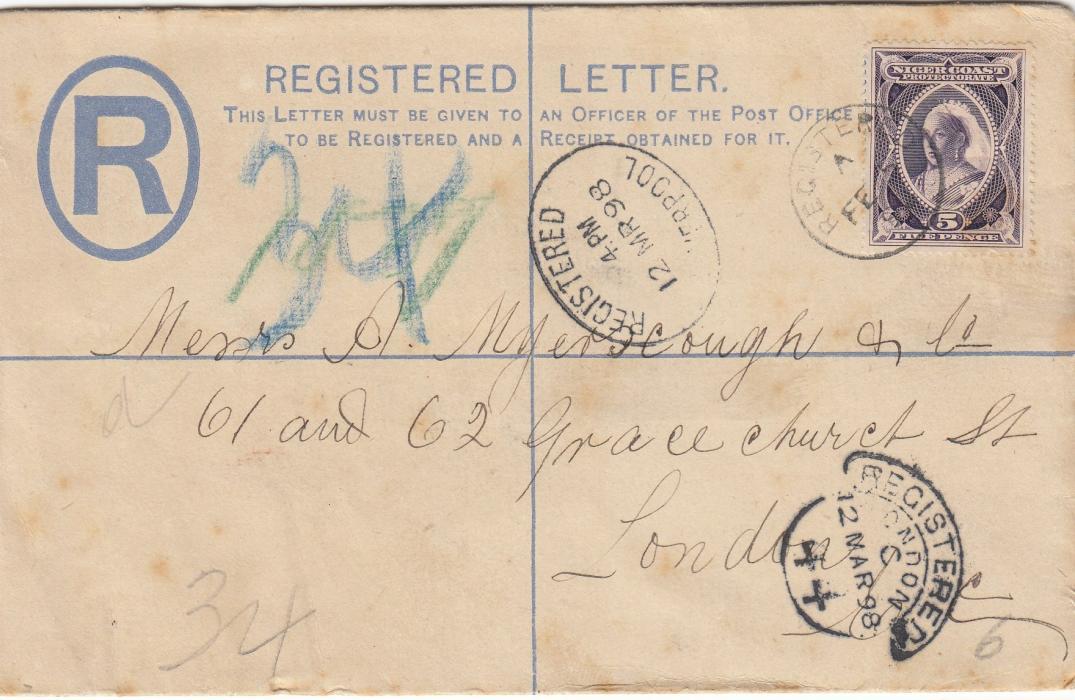 R
REGISTERED LETTER.
THIS LETTER MUST BE GIVEN TO AN OFFICER OF THE POST OFFICE
TO BE REGISTERED AND A RECEIPT OBTAINED FOR IT.
NIGER COAST
PROTECTORATE
5
FIVE PENCE
REGISTERED
A
FE
34
REGISTERED
4 PM
12 MR 98
VERPOOL
Messrs A. Myerscough & Co
61 and 62 Gracechurch St
London
REGISTERED
LONDON
C
12 MAR 98
++
34
6